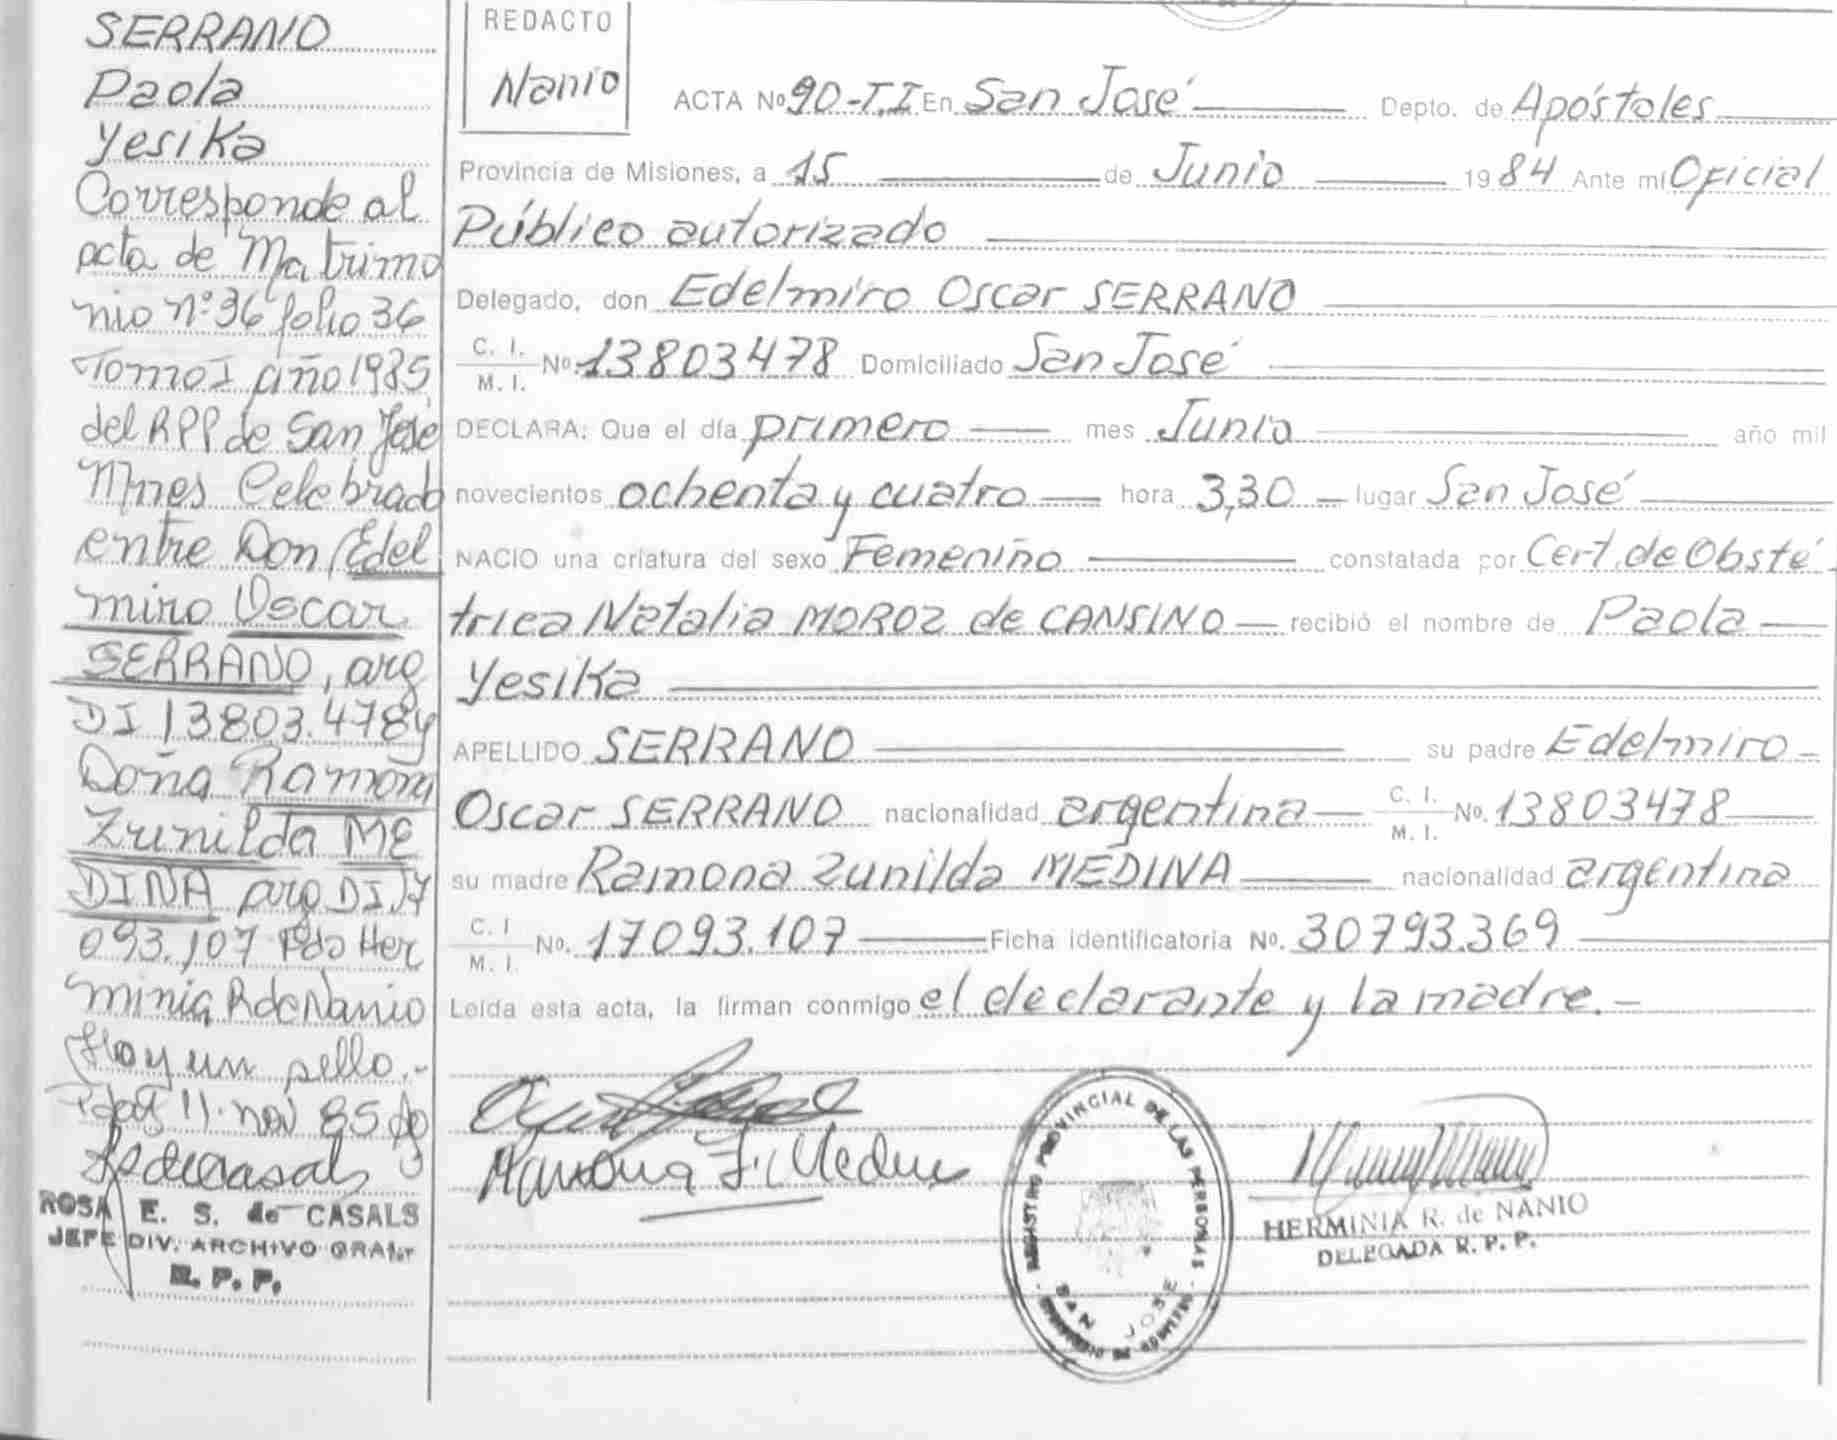 SERRANO
Paola
Yesika
Corresponde al
acta de Matrimo
nio nº 36 folio 36
Tomo I año 1985
del RPP de San José
Mnes Celebrado
entre Don Edel
miro Oscar
SERRANO, arg
DI 13803.478 y
Doña Ramona
Zunilda ME
DINA arg DI 17
093.107 Fdo Her
minia R de Nanio
Hay un sello.-
Pdas 11. nov 85
ROSA E. S. de CASALS
JEFE DIV. ARCHIVO GRAL.
R. P. P.
REDACTO
Nanio
ACTA Nº 90-T.I En San José Depto. de Apóstoles
Provincia de Misiones, a 15 de Junio 1984 Ante mí Oficial
Público autorizado
Delegado, don Edelmiro Oscar SERRANO
C. I. M. I. Nº. 13803478 Domiciliado San José
DECLARA: Que el día primero mes Junio año mil
novecientos ochenta y cuatro hora 3,30 lugar San José
NACIO una criatura del sexo Femenino constatada por Cert. de Obsté
trica Natalia MOROZ de CANSINO recibió el nombre de Paola
Yesika
APELLIDO SERRANO su padre Edelmiro
Oscar SERRANO nacionalidad argentina C. I. M. I. Nº. 13803478
su madre Ramona Zunilda MEDINA nacionalidad argentina
C. I M. I. Nº. 17093.107 Ficha identificatoria Nº. 30793.369
Leída esta acta, la firman conmigo el declarante y la madre.-
Ramona Z. Medina
REGISTRO PROVINCIAL DE LAS PERSONAS
SAN JOSE
HERMINIA R. de NANIO
DELEGADA R. P. P.